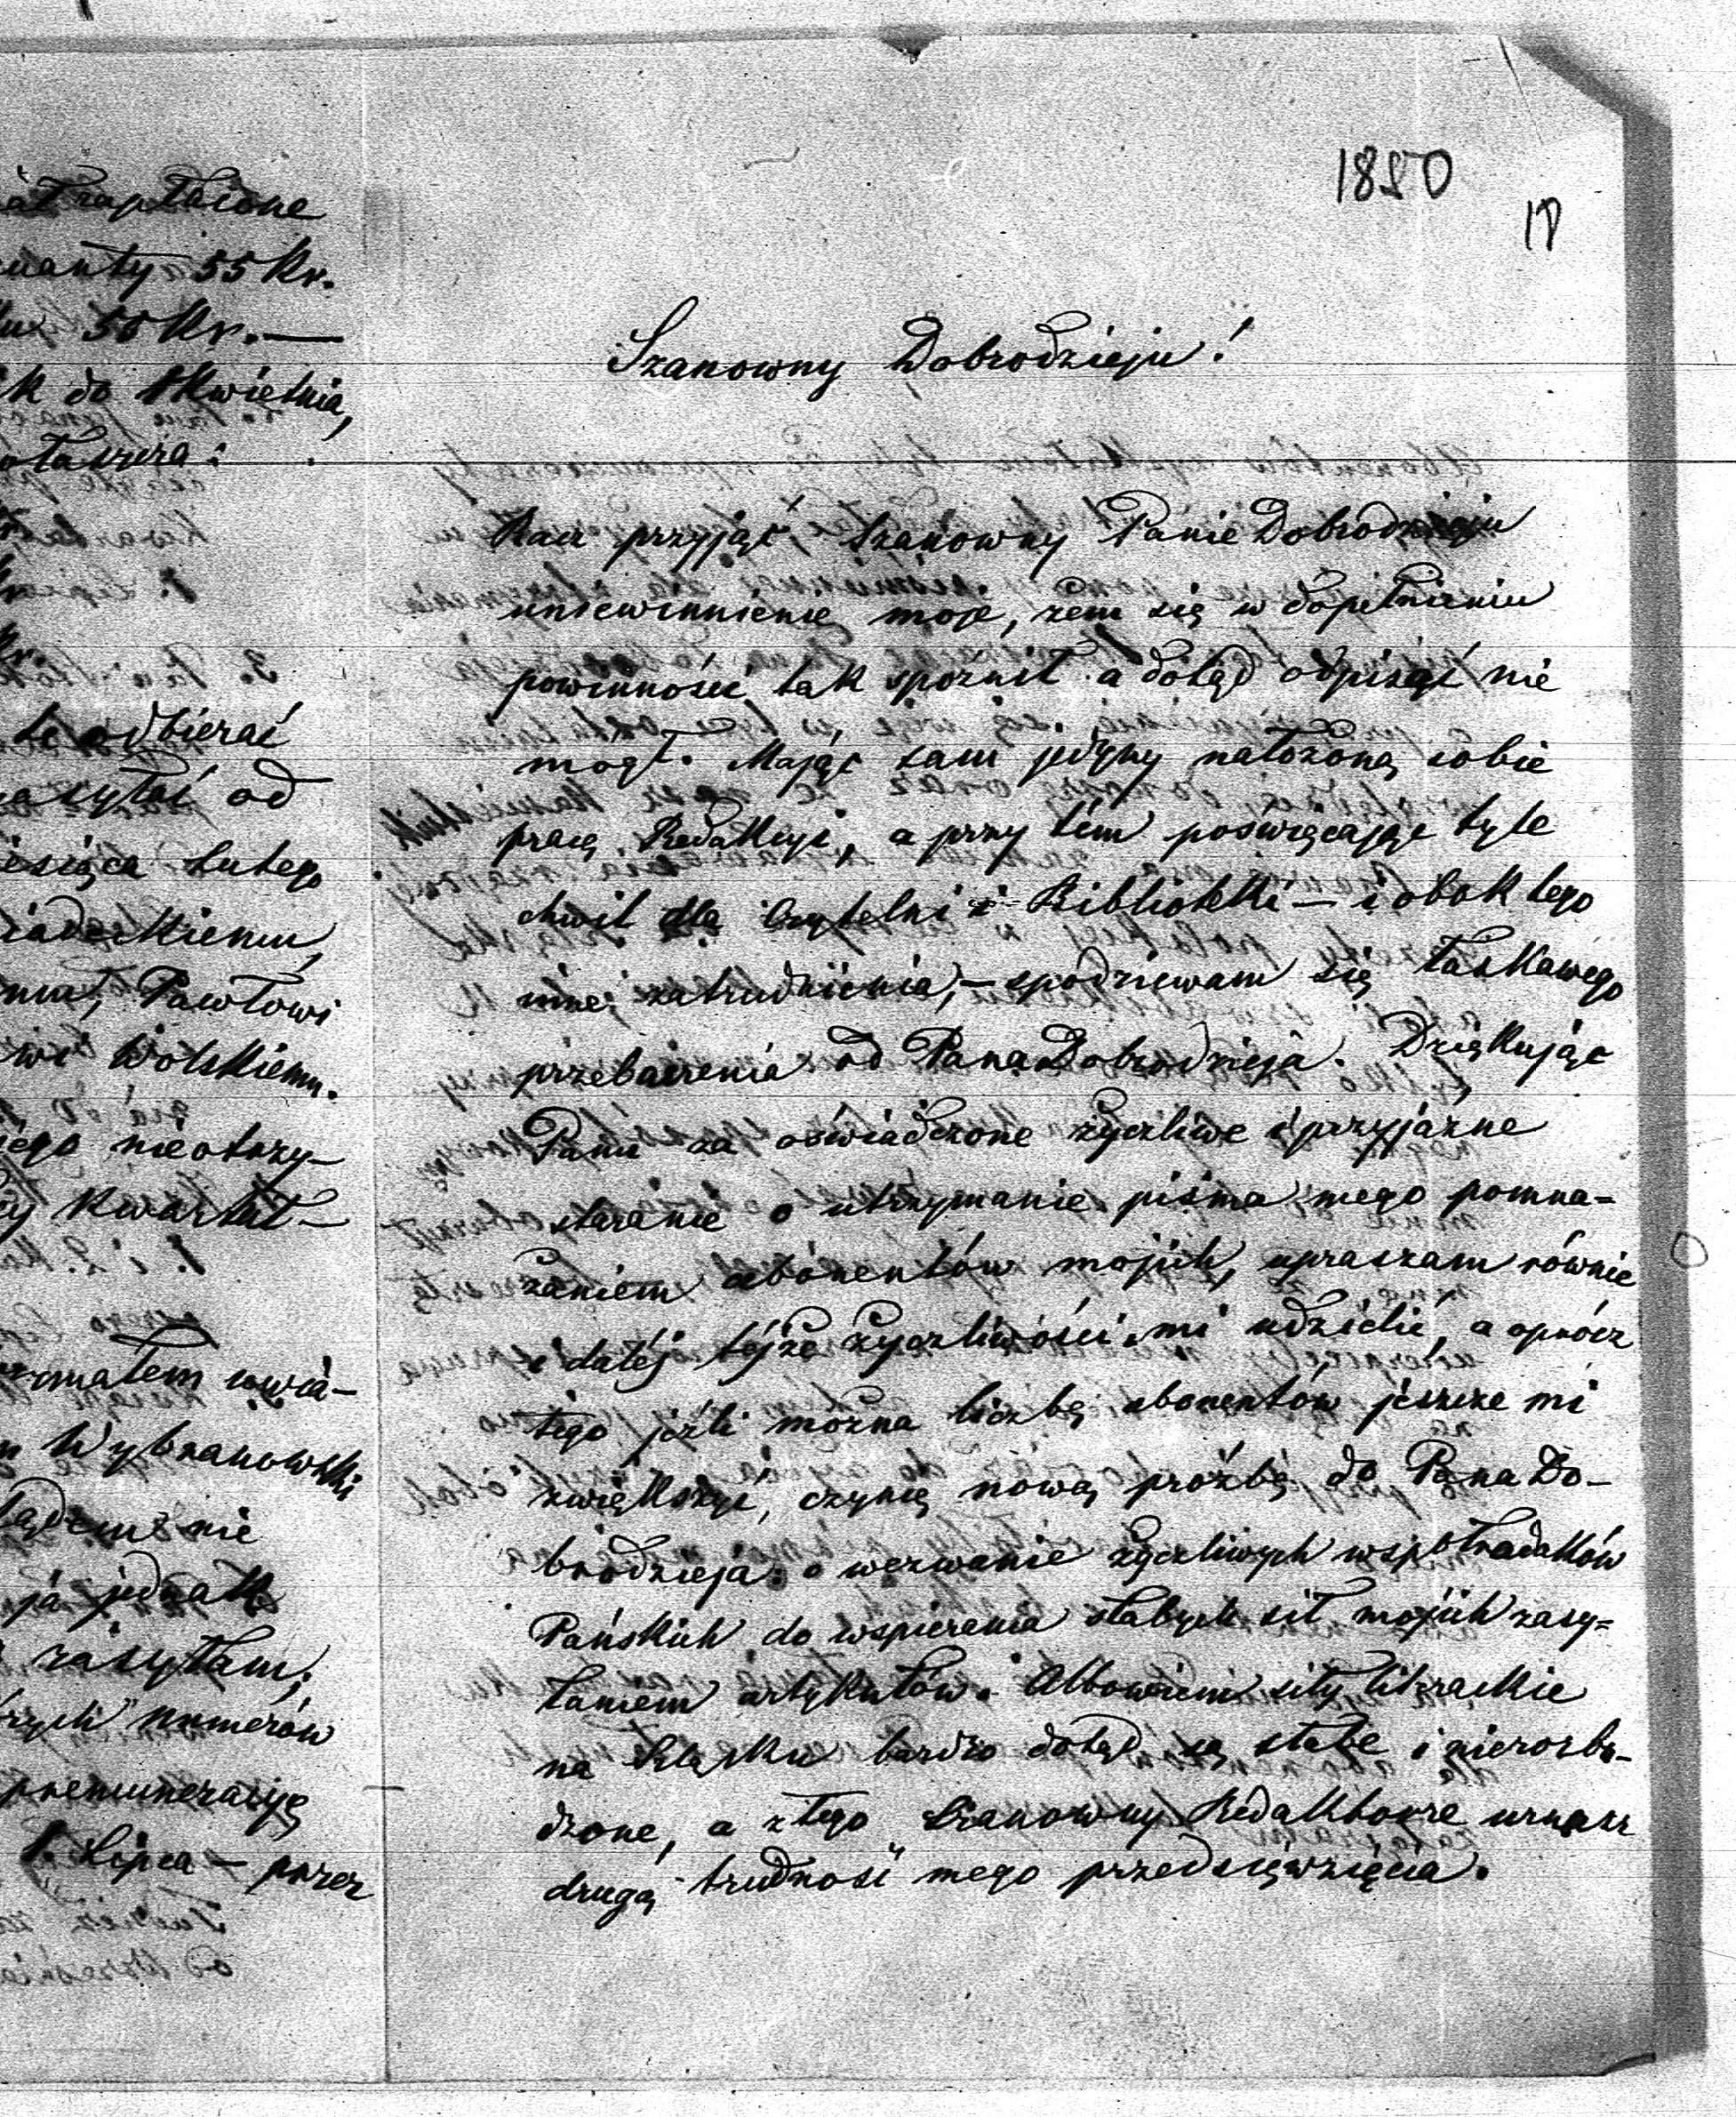 1850
Szanowny Dobrodzieju!
Racz przyjąć Szanowny Panie Dobrodzieju
uniewinnienie moje, żem się w dopełnieniu
powinności tak spóźnił a dotąd odpisać nie
mógł. Mając sam jedyny nałożoną sobie
pracę Redakcyi, a przy tém poświęcając tyle
chwil dla Czytelni i Bibliotéki — i obok tego
inne zatrudnienia, — spodziewam się łaskawego
przebaczenia od Pana Dobrodzieja. Dziękując
Panu za oświadczone życzliwe i przyjaźne
staranie o utrzymanie pisma mego pomna=
żaniem abonentów mojich, upraszam równie
i daléj téjże życzliwości mi udzielić, a oprócz
tego jeźli można liczbę abonentów jeszcze mi
zwiększyć, czynię nową proźbę do Pana Do-
brodzieja o wezwanie życzliwych współrodaków
Pańskich do wspierenia słabych sił mojich zasy=
łaniem artykułów. Albowiem siły literackie
na Szląsku bardzo dotąd są słabe i nierozbu-
dzone, a z tego Szanowny Redaktorze uznasz
drugą trudność mego przedsięwzięcia.
zapłacone
55 Kr.
55 Kr. —
do 1 Kwietnia,
te odbierać
od
Lutego
Pawłowi
Wolskiemu.
nieotrzy-
Kwartał —
Wybranowski
nie
ja jednak
zasyłam,
numerów
prenumeracyę
1. Lipca — przez